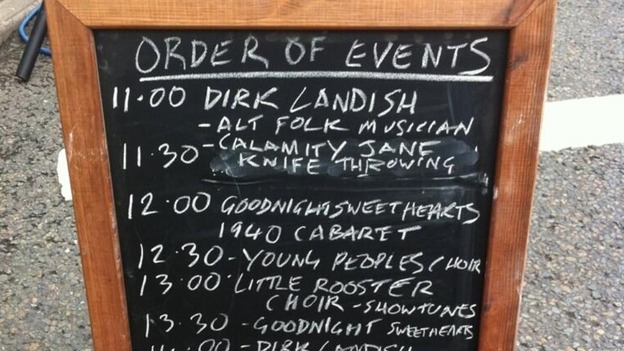 ORDER OF EVENTS
11.00 DIRK LANDISH
- ALT FOLK MUSICIAN
11.30 - CALAMITY JANE
KNIFE THROWING
12.00 GOODNIGHT SWEETHEARTS
1940 CABARET
12.30 - YOUNG PEOPLES CHOIR
13.00 LITTLE ROOSTER
CHOIR - SHOWTUNES
13.30 - GOODNIGHT SWEETHEARTS
14.00 - DIRK LANDISH